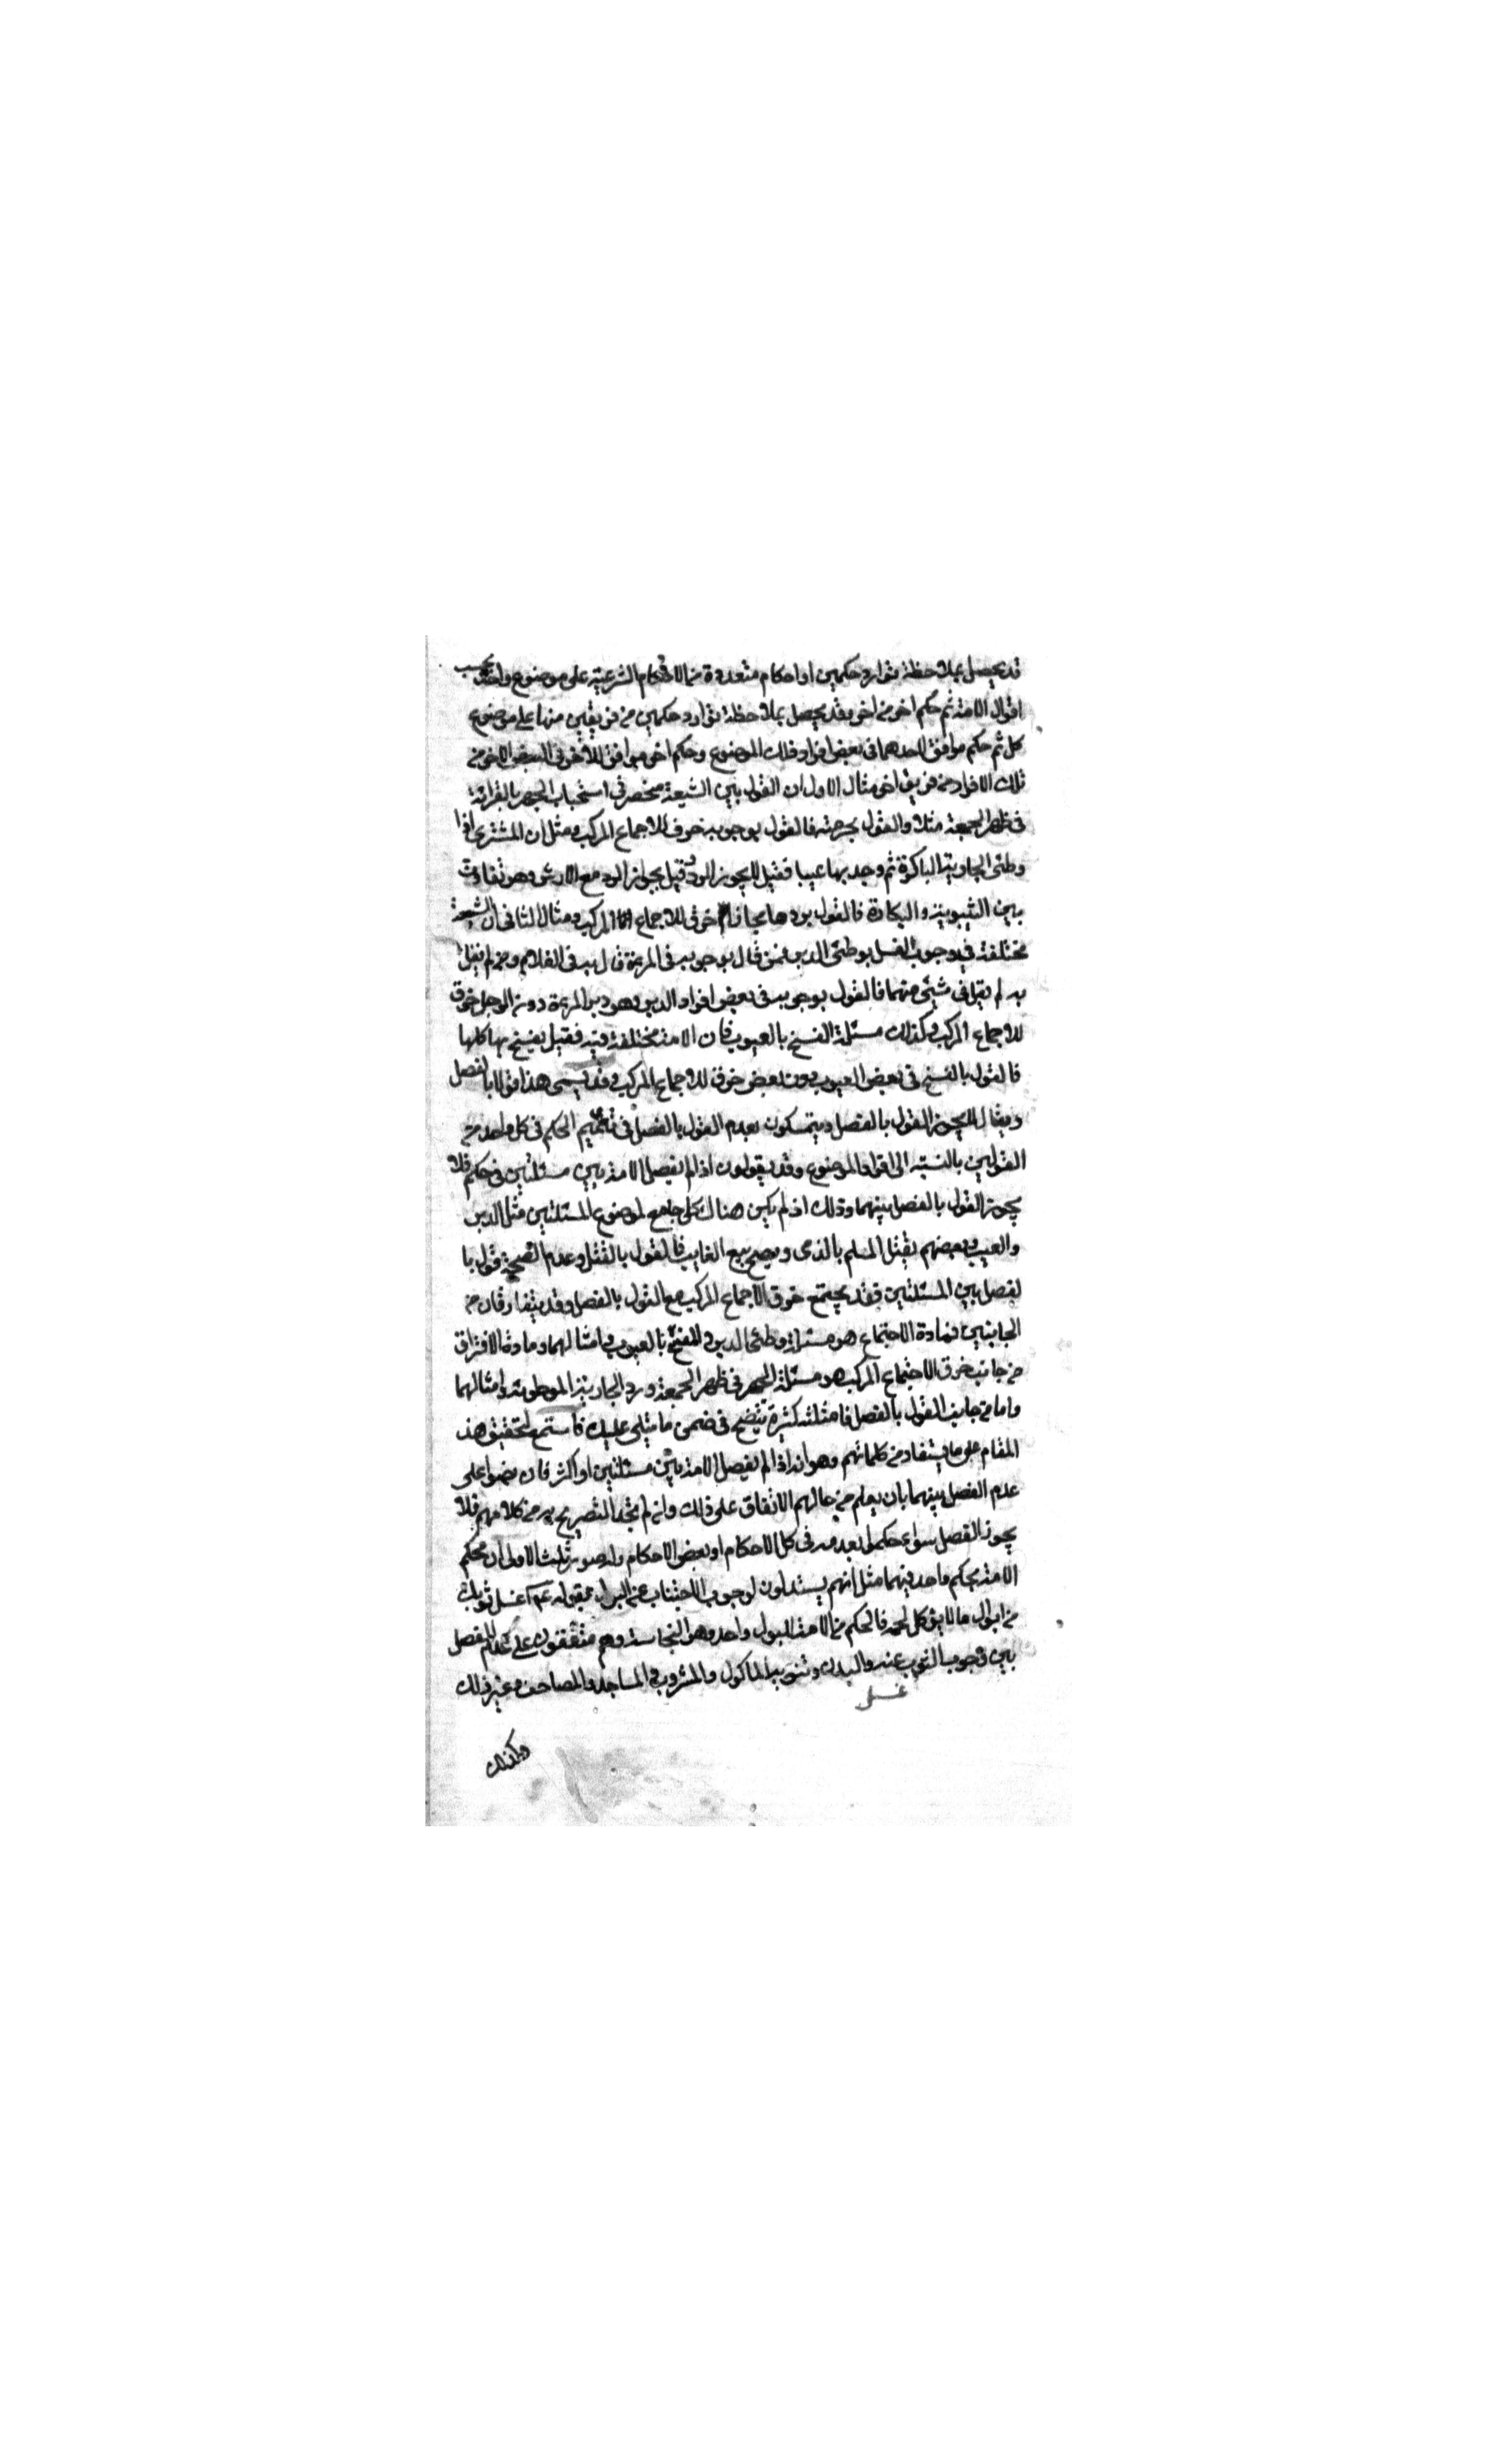 قد يحصل بملاحظة توارد حكمين او احكام متعددة من الاحكام الشرعية على موضوع واحد بحسب
اقوال الامة ثم حكم اخر من اخر وقد يحصل بملاحظة توارد حكمين من فريقين منها على موضوع
كل ثم حكم موافق لاحدهما في بعض افراد ذلك الموضوع وحكم اخر موافق للاخر في البعض الاخر من
تلك الافراد من فريق اخر مثال الاول ان القول بين الشيعة منحصر في استحباب الجهر بالقرائة
في ظهر الجمعة مثلا والقول بحرمته فالقول بوجوبه خرق للاجماع المركب ومثل ان المشتري اذا
وطئ الجارية الباكرة ثم وجد بها عيبا فقيل لا يجوز الرد وقيل بجواز الرد مع الارش وهو تفاوت
بين الثيبوبة والبكارة فالقول بردها مجانا خرق للاجماع المركب ومثال الثاني ان الشيعة
مختلفة في وجوب الغسل بوطئ الدبر فمن قال بوجوبه في المرءة قال به في الغلام ومن لم يقل
به لم يقل في شيئ منهما فالقول بوجوبه في بعض افراد الدبر وهو دبر المرءة دون الرجل خرق
للاجماع المركب وكذلك مسئلة الفسخ بالعيوب فان الامة مختلفة فيه فقيل يفسخ بها كلها
فالقول بالفسخ في بعض العيوب دون بعض خرق للاجماع المركب وقد يسمى هذا قولا بالفصل
ويقال لا يجوز القول بالفصل ويتمسكون بعدم القول بالفصل في تعميم الحكم في كل واحد من
القولين بالنسبة الى افراد الموضوع وقد يقولون اذا لم يفصل الامة بين مسئلتين في حكم فلا
يجوز القول بالفصل بينهما وذلك اذ لم يكن هناك كلي جامع لموضوع المسئلتين مثل الدبر
والعيب وبعضهم يقتل المسلم بالذمي ويصح بيع الغايب فالقول بالقتل وعدم الصحة قول با
لفصل بين المسئلتين فقد يجتمع خرق الاجماع المركب مع القول بالفصل وقد يتفارقان من
الجانبين فمادة الاجتماع هو مسئلة وطئ الدبر والفسخ بالعيوب وامثالهما ومادة الافتراق
من جانب خرق الاجتماع المركب هو مسئلة الجهر في ظهر الجمعة ورد الجارية الموطوئة وامثالهما
واما من جانب القول بالفصل فامثلته كثيرة يتضح في ضمن ما يتلى عليك فاستمع لتحقيق هذ
المقام على ما يستفاد من كلماتهم وهو انه اذا لم يفصل الامة بين مسئلتين او اكثر فان نصوا على
عدم الفصل بينهما بان يعلم من حالهم الاتفاق على ذلك وان لم نجد التصريح به من كلامهم فلا
يجوز الفصل سواء حكموا بعدمه في كل الاحكام او بعض الاحكام وله صور ثلث الاولى ان يحكم
الامة بحكم واحد فيهما مثل انهم يستدلون لوجوب الاجتناب عن البول بقوله عم اغسل ثوبك
من ابوال ما لا يؤكل لحمه فالحكم من الامة للبول واحد وهو النجاسة وهم متفقون على عدم الفصل
بين وجوب الثوب عنه والبدن وتنويب الماكول والمشروب والمساجد والمصاحف وغير ذلك
غسل
وكذلك